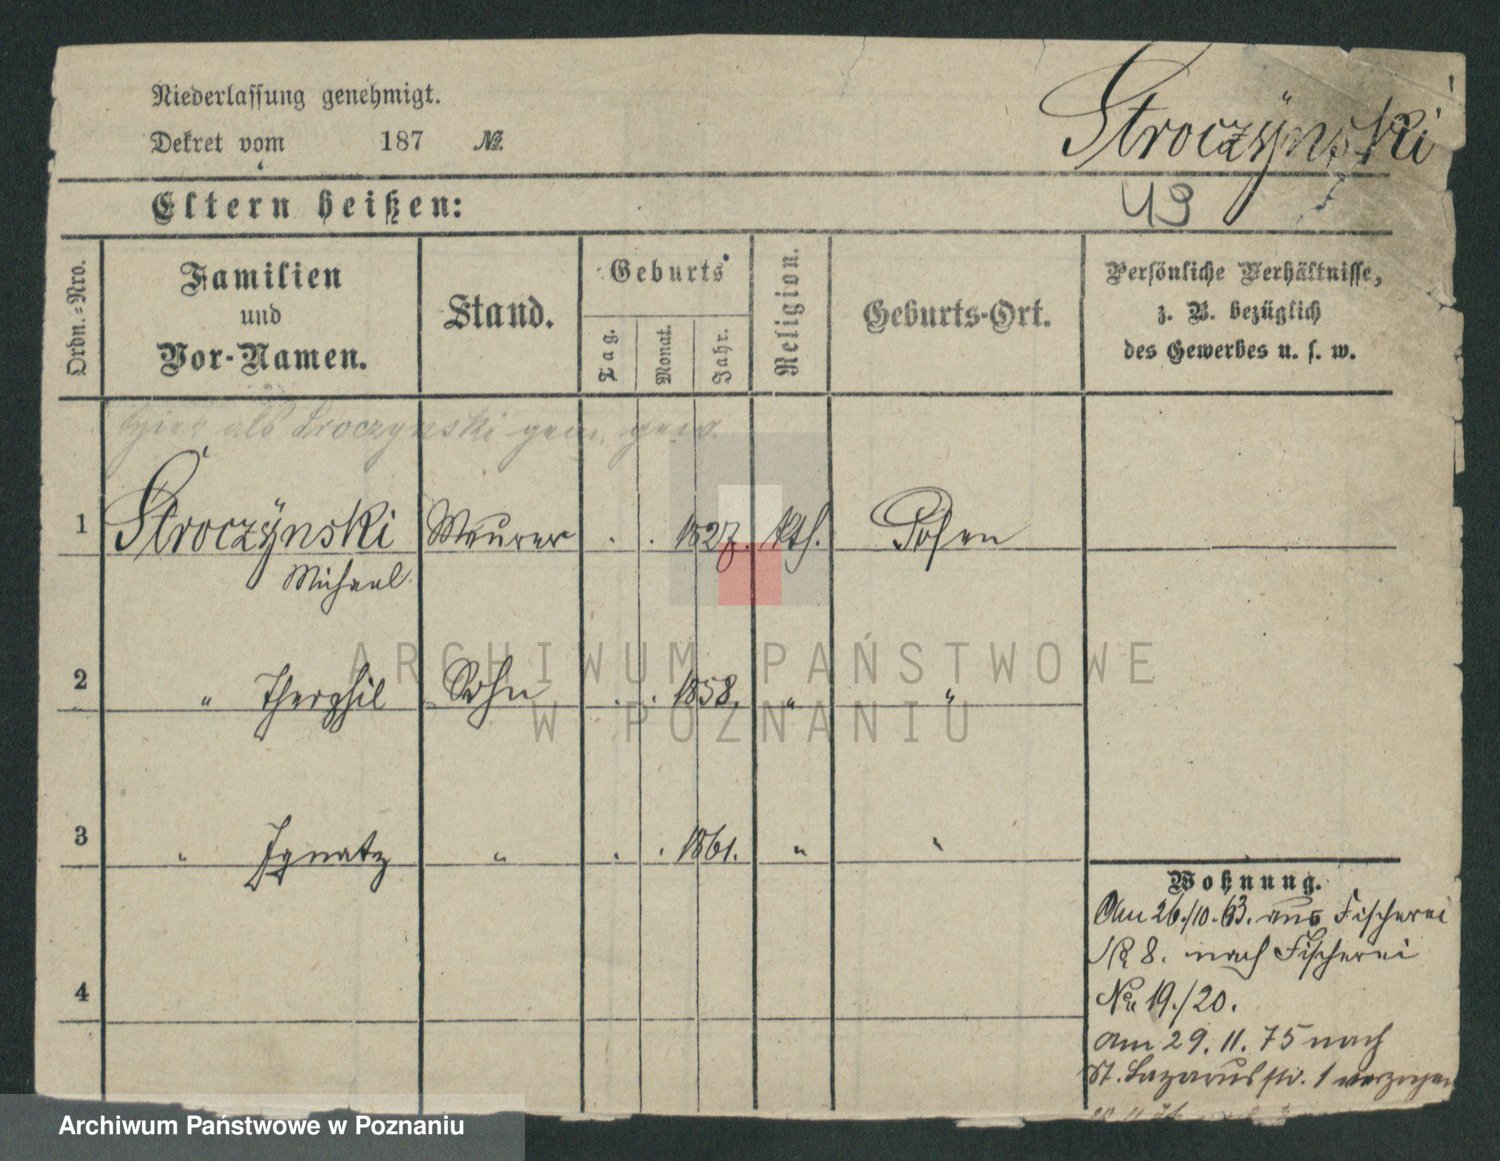 Niederlassung genehmigt.
Dekret vom 187 №
Stroczÿnski
Eltern heißen:
49
Ordn.=Nro.
Familien
und
Vor-Namen.
Stand.
Geburts
Tag.
Monat.
Jahr.
Religion.
Geburts-Ort.
Persönliche Verhältnisse,
z. B. bezüglich
des Gewerbes u. s. w.
Hier als Sroczynski gem. gew.
1 Stroczÿnski Maurer . . 1827. kth. Posen
Michael
2 " Theophil Sohn . . 1858. " "
3 " Ignatz " . . 1861. " "
4
Wohnung.
Am 26./10.63. aus Fischerei
No 8. nach Fischerei
No 19./20.
am 29. 11. 75 nach
St. Lazarusstr. 1 verzogen
ARCHIWUM PAŃSTWOWE
W POZNANIU
Archiwum Państwowe w Poznaniu